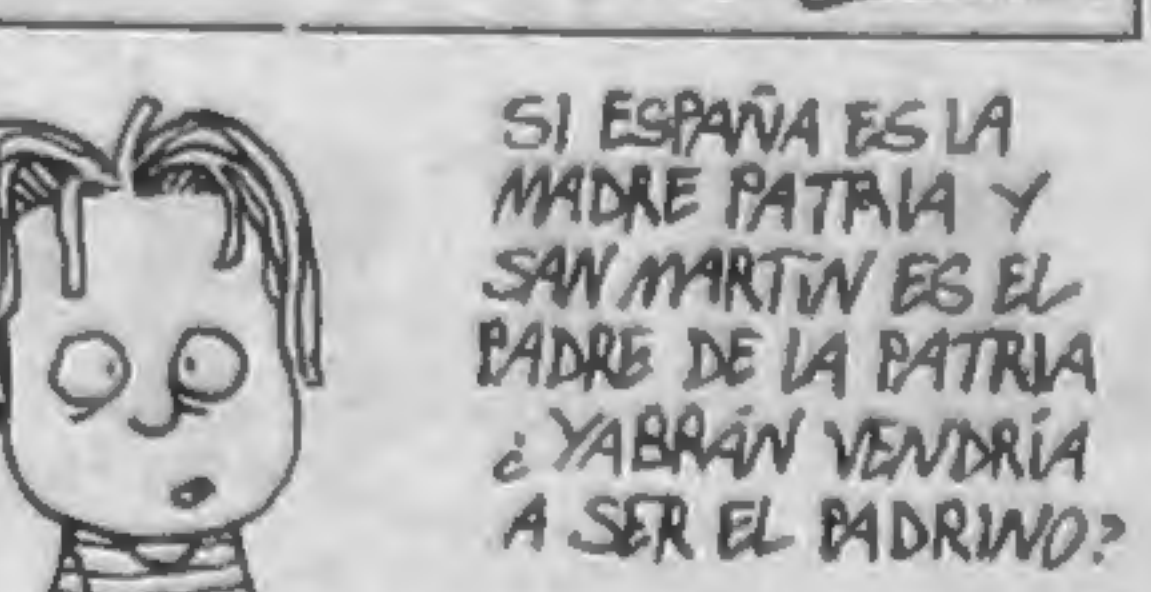 SI ESPAÑA ES LA
MADRE PATRIA Y
SAN MARTÍN ES EL
PADRE DE LA PATRIA
¿YABRÁN VENDRÍA
A SER EL PADRINO?